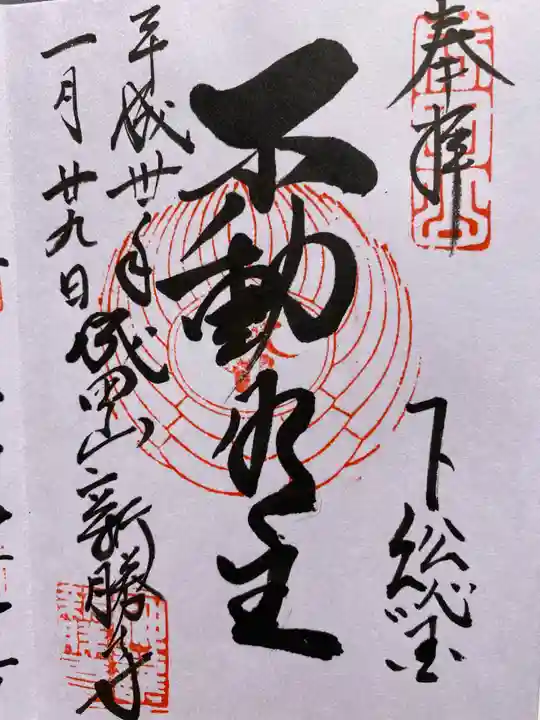 奉拝
下総国
不動明王
平成丗年
一月廿九日
成田山新勝寺